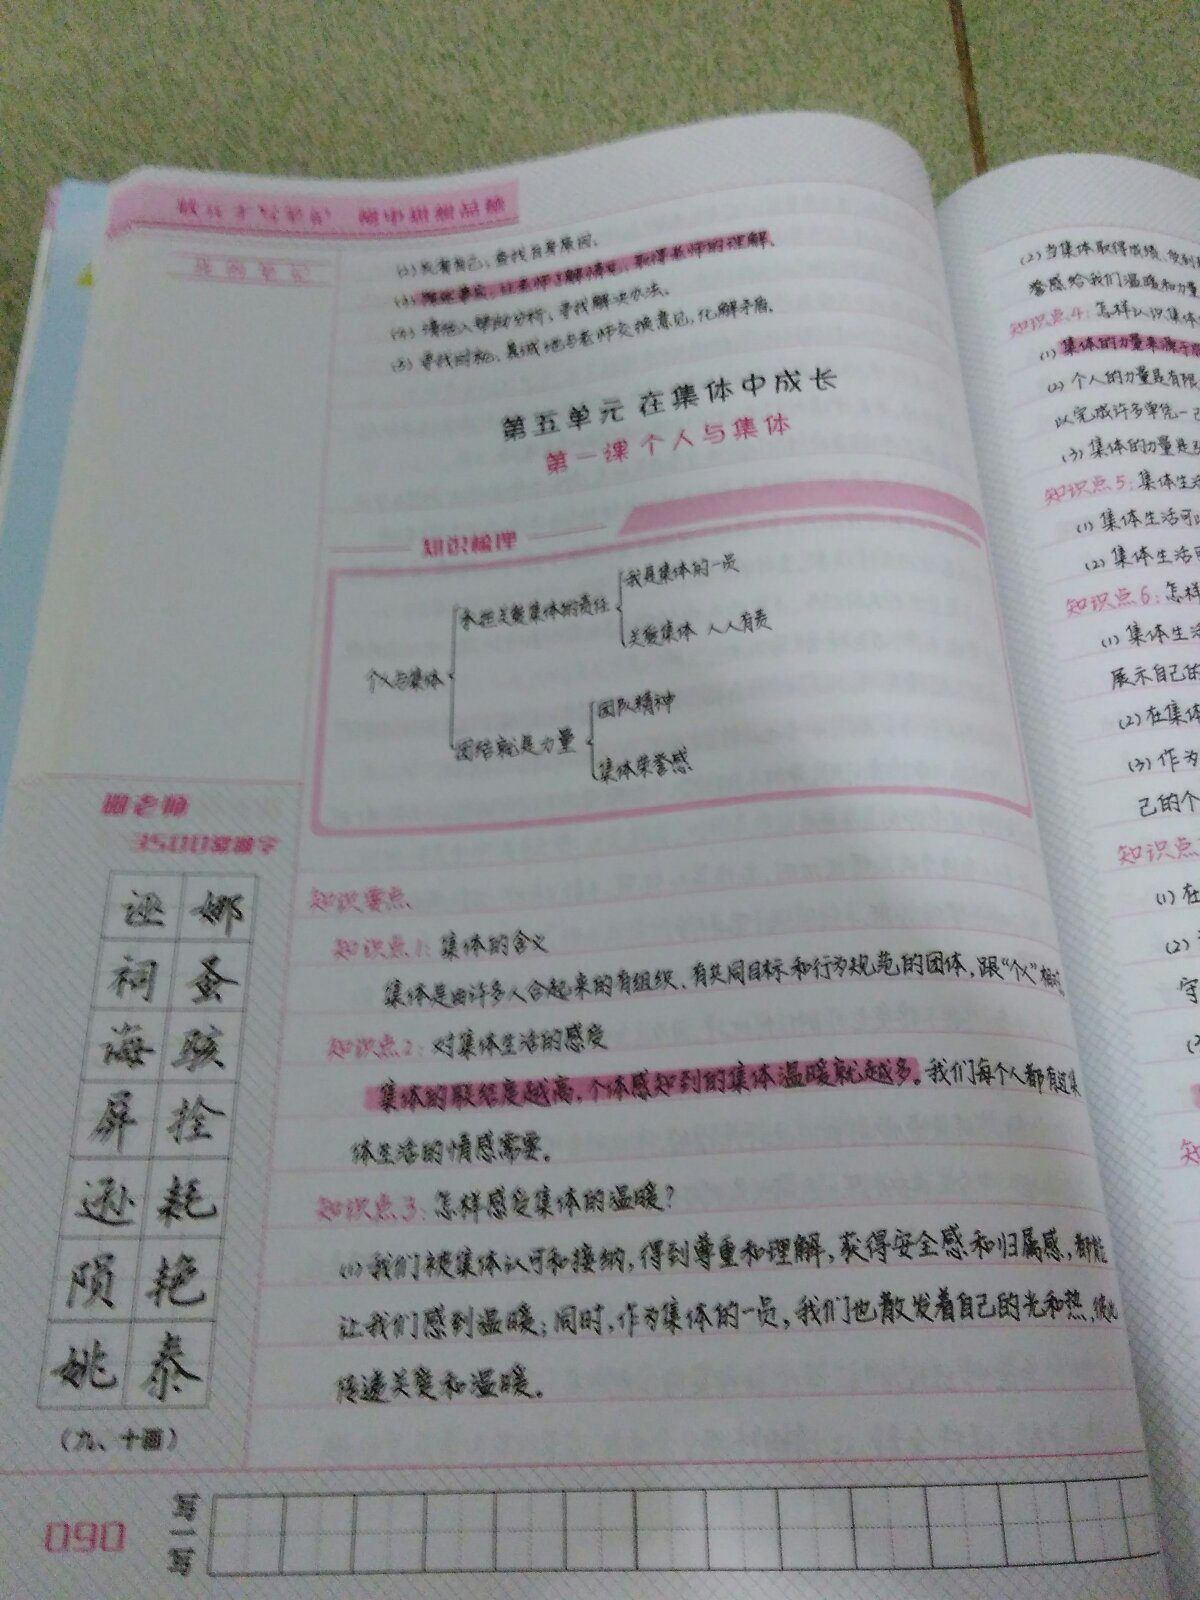 状元手写笔记
(2)反省自己、查找自身原因。
(3)陈述事实,让老师了解情况,取得老师的理解。
(4)请他人帮助分析、寻找解决办法。
(5)寻找时机、真诚地与老师交换意见,化解矛盾。
第五单元 在集体中成长
第一课 个人与集体
知识梳理
个人与集体
承担关爱集体的责任
我是集体的一员
关爱集体 人人有责
团结就是力量
团队精神
集体荣誉感
知识要点
知识点1:集体的含义
集体是由许多人合起来的有组织、有共同目标和行为规范的团体,跟“个人”相对
知识点2:对集体生活的感受
集体的联结度越高,个体感知到的集体温暖就越多。我们每个人都有过集
体生活的情感需要。
知识点3:怎样感受集体的温暖?
(1)我们被集体认可和接纳,得到尊重和理解,获得安全感和归属感,都能
让我们感到温暖;同时,作为集体的一员,我们也散发着自己的光和热,彼此
传递关爱和温暖。
3500常用字
诬 娜
祠 蚤
海 骇
屏 拴
逊 耗
陨 艳
姚 泰
(九、十画)
写一写
090
(2)当集体取得成绩、受到
誉感给我们温暖和力量
知识点4:怎样认识集体
(1)集体的力量来源于
(2)个人的力量是有限
以完成许多单凭一己
(3)集体的力量是
知识点5:集体生活
(1)集体生活可以
(2)集体生活可
知识点6:怎样
(1)集体生活
展示自己的
(2)在集体
(3)作为
己的个
知识点
(1)在
(2)
守